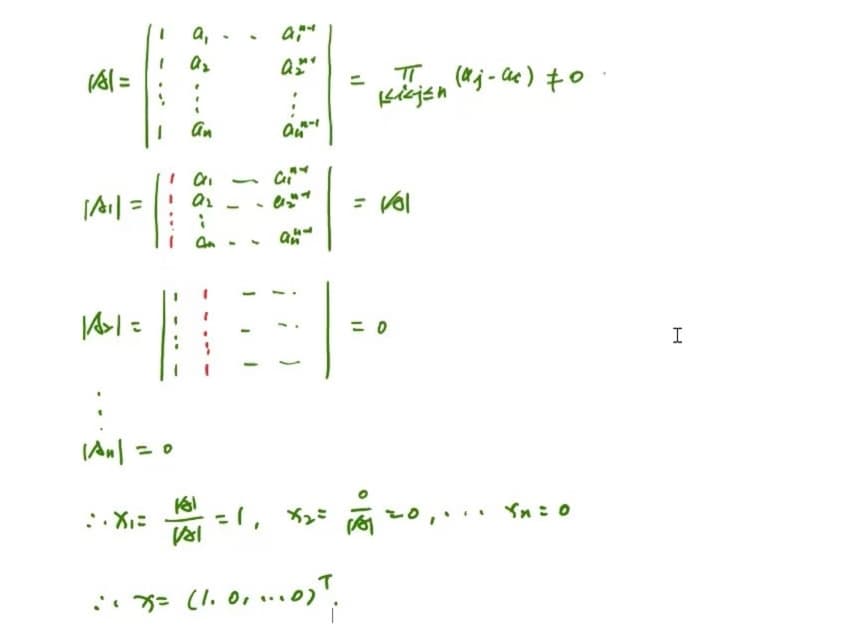 |A| = | 1 a₁ · · a₁ⁿ⁻¹ |
| 1 a₂ a₂ⁿ⁻¹ | = ∏ 1≤i<j≤n (aⱼ - aᵢ) ≠ 0
| ⋮ ⋮ ⋮ |
| 1 aₙ aₙⁿ⁻¹ |
|A₁| = | 1 a₁ — a₁ⁿ⁻¹ |
| 1 a₂ - · · a₂ⁿ⁻¹ | = |A|
| ⋮ ⋮ |
| 1 aₙ - · - aₙⁿ⁻¹ |
|A₂| = | 1 1 - - · |
| ⋮ ⋮ - - · | = 0
| 1 1 - - |
⋮
|Aₙ| = 0
∴ x₁ = |A| / |A| = 1, x₂ = 0 / |A| = 0, · · · xₙ = 0
∴ x = (1. 0, ...0)ᵀ.